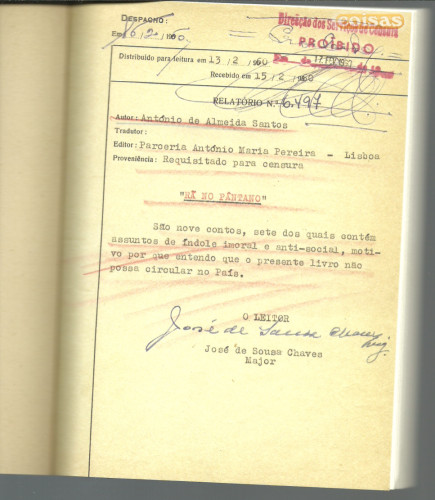 DESPACHO:
Em 16/2/60
Direcção dos Serviços de Censura
PROIBIDO
Distribuido para leitura em 13/2/960
Recebido em 15/2/960
RELATÓRIO N.º 6.497
Autor: António de Almeida Santos
Tradutor:
Editor: Parceria António Maria Pereira - Lisboa
Proveniência: Requisitado para censura
"RÃ NO PÂNTANO"
São nove contos, sete dos quais contém
assuntos de índole imoral e anti-social, moti-
vo por que entendo que o presente livro não
possa circular no País.
O LEITOR
José de Sousa Chaves
José de Sousa Chaves
Major
coisas